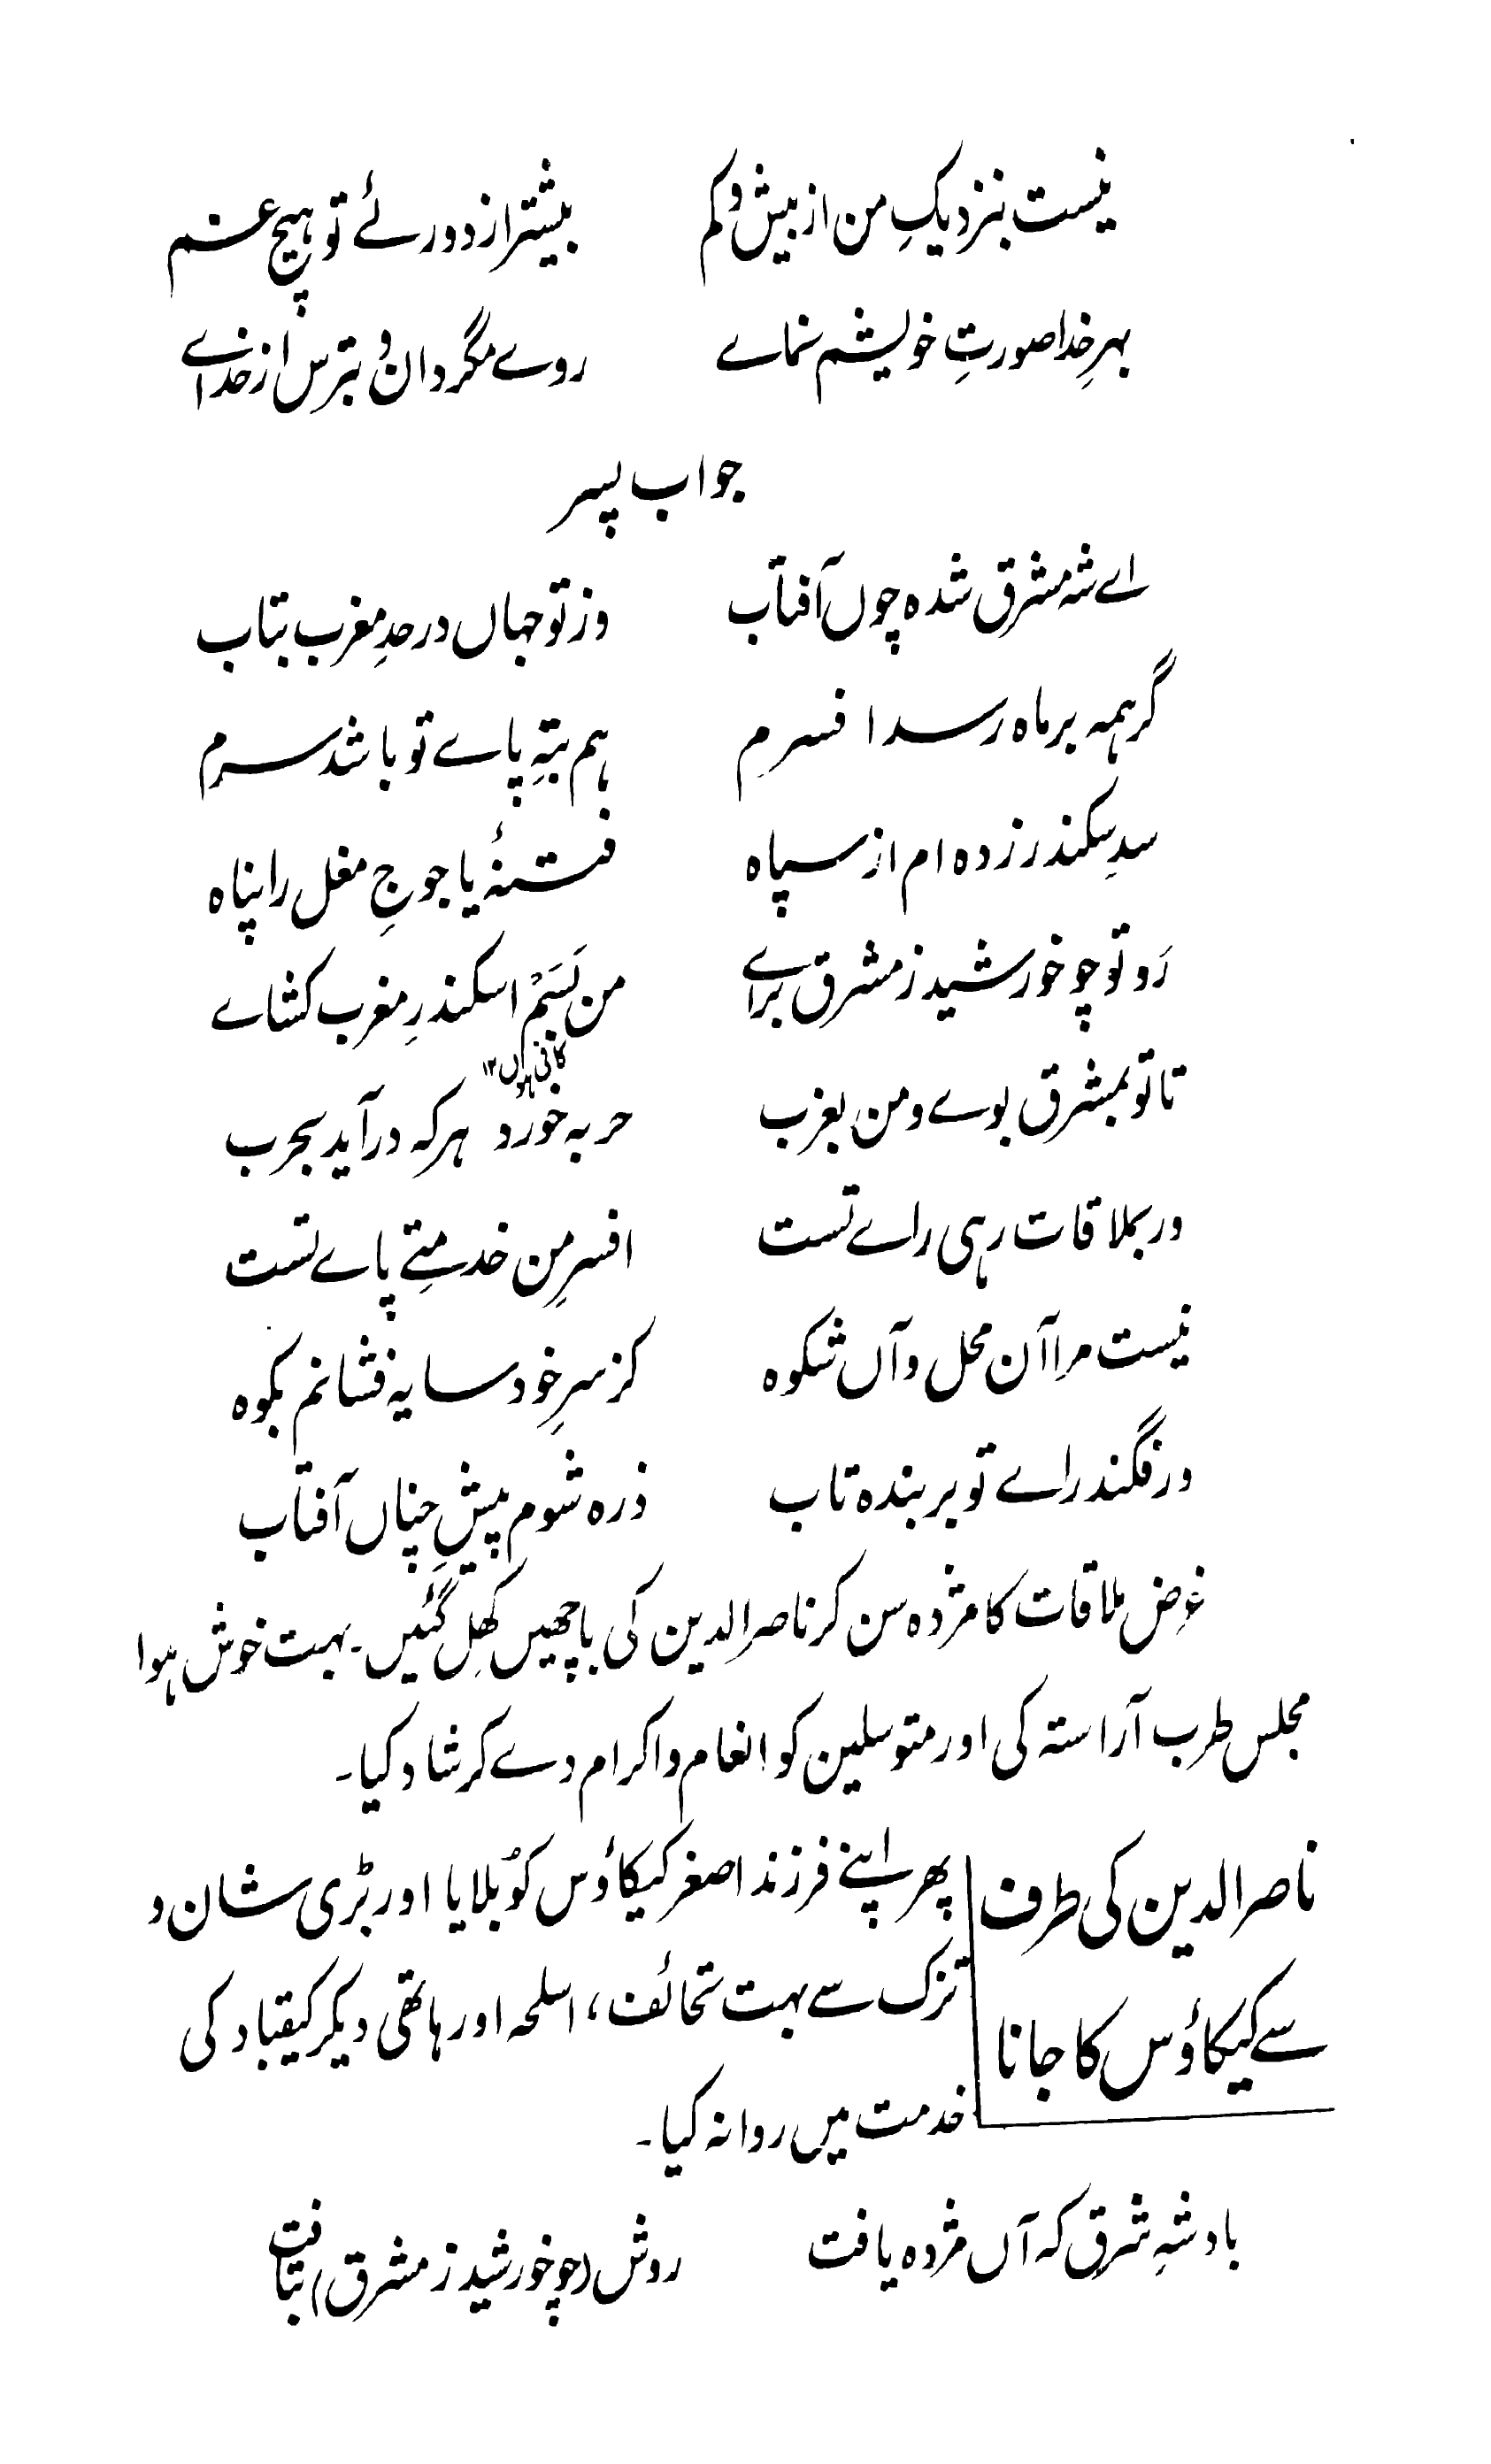 نیست بنزدیکِ من از بیش و کم بیشتر از دوریٔ تو ہیچ غم
بہرِ خدا صورتِ خویشم نماے روے مگردان و بترس از خداے
جواب پسر
اے شہ مشرق شدہ چوں آفتاب وز تو جہاں در حدِ مغرب بتاب
گرہمہ برماہ رسد افسرم ہم بتہِ پاے تو باشد سرم
سدِ سکندر زدہ ام از سپاہ فتنۂ یاجوجِ مغل را پناہ
رَو تو چو خورشید ز مشرق براے من بَسَمْ اسکندرِ مغرب کشاے
کافی ہوں ۱۲
تا تو بمشرق بوے و من بغرب حربہ خورد ہرکہ درآید بحرب
ور بملاقات رہی راے تست افسرِ من خدمتیِ پاے تست
نیست مرا آن محل و آں شکوہ کز سرِ خود سایہ فشانم بکوہ
ور فگند راے تو بر بندہ تاب ذرہ شوم پیشِ چناں آفتاب
غرض ملاقات کا مژدہ سن کر ناصرالدین کی باچھیں کھِل گئیں۔ بہت خوش ہوا
مجلس طرب آراستہ کی اور متوسلین کو انعام و اکرام دے کر شاد کیا۔
ناصرالدین کی طرف
سے کیکاؤس کا جانا
پھر اپنے فرزند اصغر کیکاؤس کو بُلایا اور بڑی شان و
تزک سے بہت تحائف، اسلحہ اور ہاتھی دیکر کیقباد کی
خدمت میں روانہ کیا۔
بادشہِ شرق کہ آں مژدہ یافت روش (چو خورشید ز مشرق) بتافت